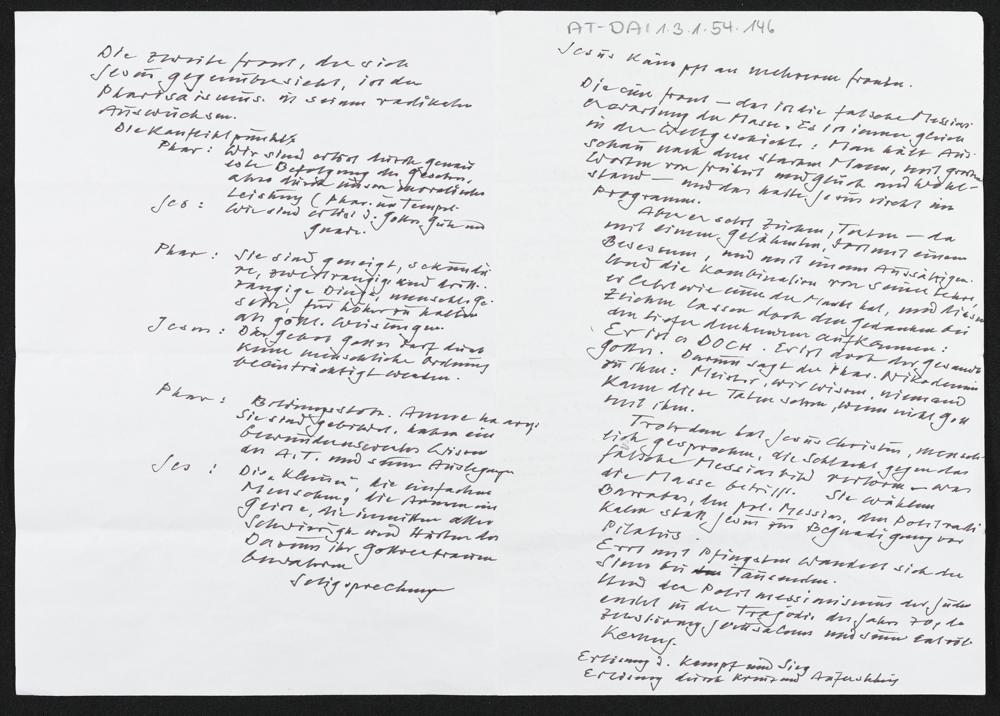 Die zweite Front, der sich
Jesus gegenübersieht, ist der
Pharisäismus in seinen radikalen
Auswüchsen.
Die Konfliktpunkte
Phar: Wir sind erlöst durch genau
este Befolgung der Gesetze
also durch unsere moralische
Leistung (Phar. im Tempel
Jes: Wir sind erlöst d. Gottes Güte und
Gnade.
Phar: Sie sind geneigt, sekundä
re, zweitrangige und dritt-
rangige Dinge, menschl. Ge-
setze, für höher zu halten
als göttl. Weisungen.
Jesus: Das Gebot Gottes darf durch
keine menschliche Ordnung
beeinträchtigt werden.
Phar: Bildungsstolz.
Sie sind gebildet, haben ein
bewundernswertes Wissen
des A.T. und seiner Auslegungen
Jes: Die Kleinen, die einfachen
Menschen, die Armen im
Geiste, die inmitten aller
Schwierigk. und Härten des
Daseins ihr Gottvertrauen
bewahren
Seligsprechung
AT-DA 1.3.1.54.146
Jesus kämpft an mehreren Fronten.
Die eine Front – das ist die falsche Messias-
erwartung der Masse. Es ist immer gleich
in der Weltgeschichte: Man hält Aus-
schau nach dem starken Mann, mit großen
Worten von Freiheit und Glück und Wohl-
stand – und das hatte Jesus nicht im
Programm.
Aber er setzt Zeichen, Taten – da
mit einem Gelähmten, dort mit einem
Besessenen, und mit einem Aussätzigen.
Und die Kombination von seiner Lehre,
er lehrt wie einer der Macht hat, und diesen
Zeichen lassen doch den Gedanken bei
den tiefer denkenden aufkommen:
Er ist es DOCH. Er ist doch der Gesandte
Gottes. Darum sagt der Phar. Nikodemus
zu ihm: Meister, wir wissen, niemand
kann diese Taten setzen, wenn nicht Gott
mit ihm.
Trotzdem hat Jesus Christus, mensch-
lich gesprochen, die Schlacht gegen das
falsche Messiasbild verloren – was
die Masse betrifft. Sie wählen
Barrabas, den pol. Messias, den Politradi-
kalen statt Jesus zur Begnadigung vor
Pilatus.
Erst mit Pfingsten wandelt sich der
Sinn bei Tausenden.
Und der Politmessianismus der Juden
endet in der Tragödie des Jahres 70, der
Zerstörung Jerusalems und seiner Entvöl-
kerung.
Erlösung d. Kampf und Sieg
Erlösung durch Kreuz und Auferstehung